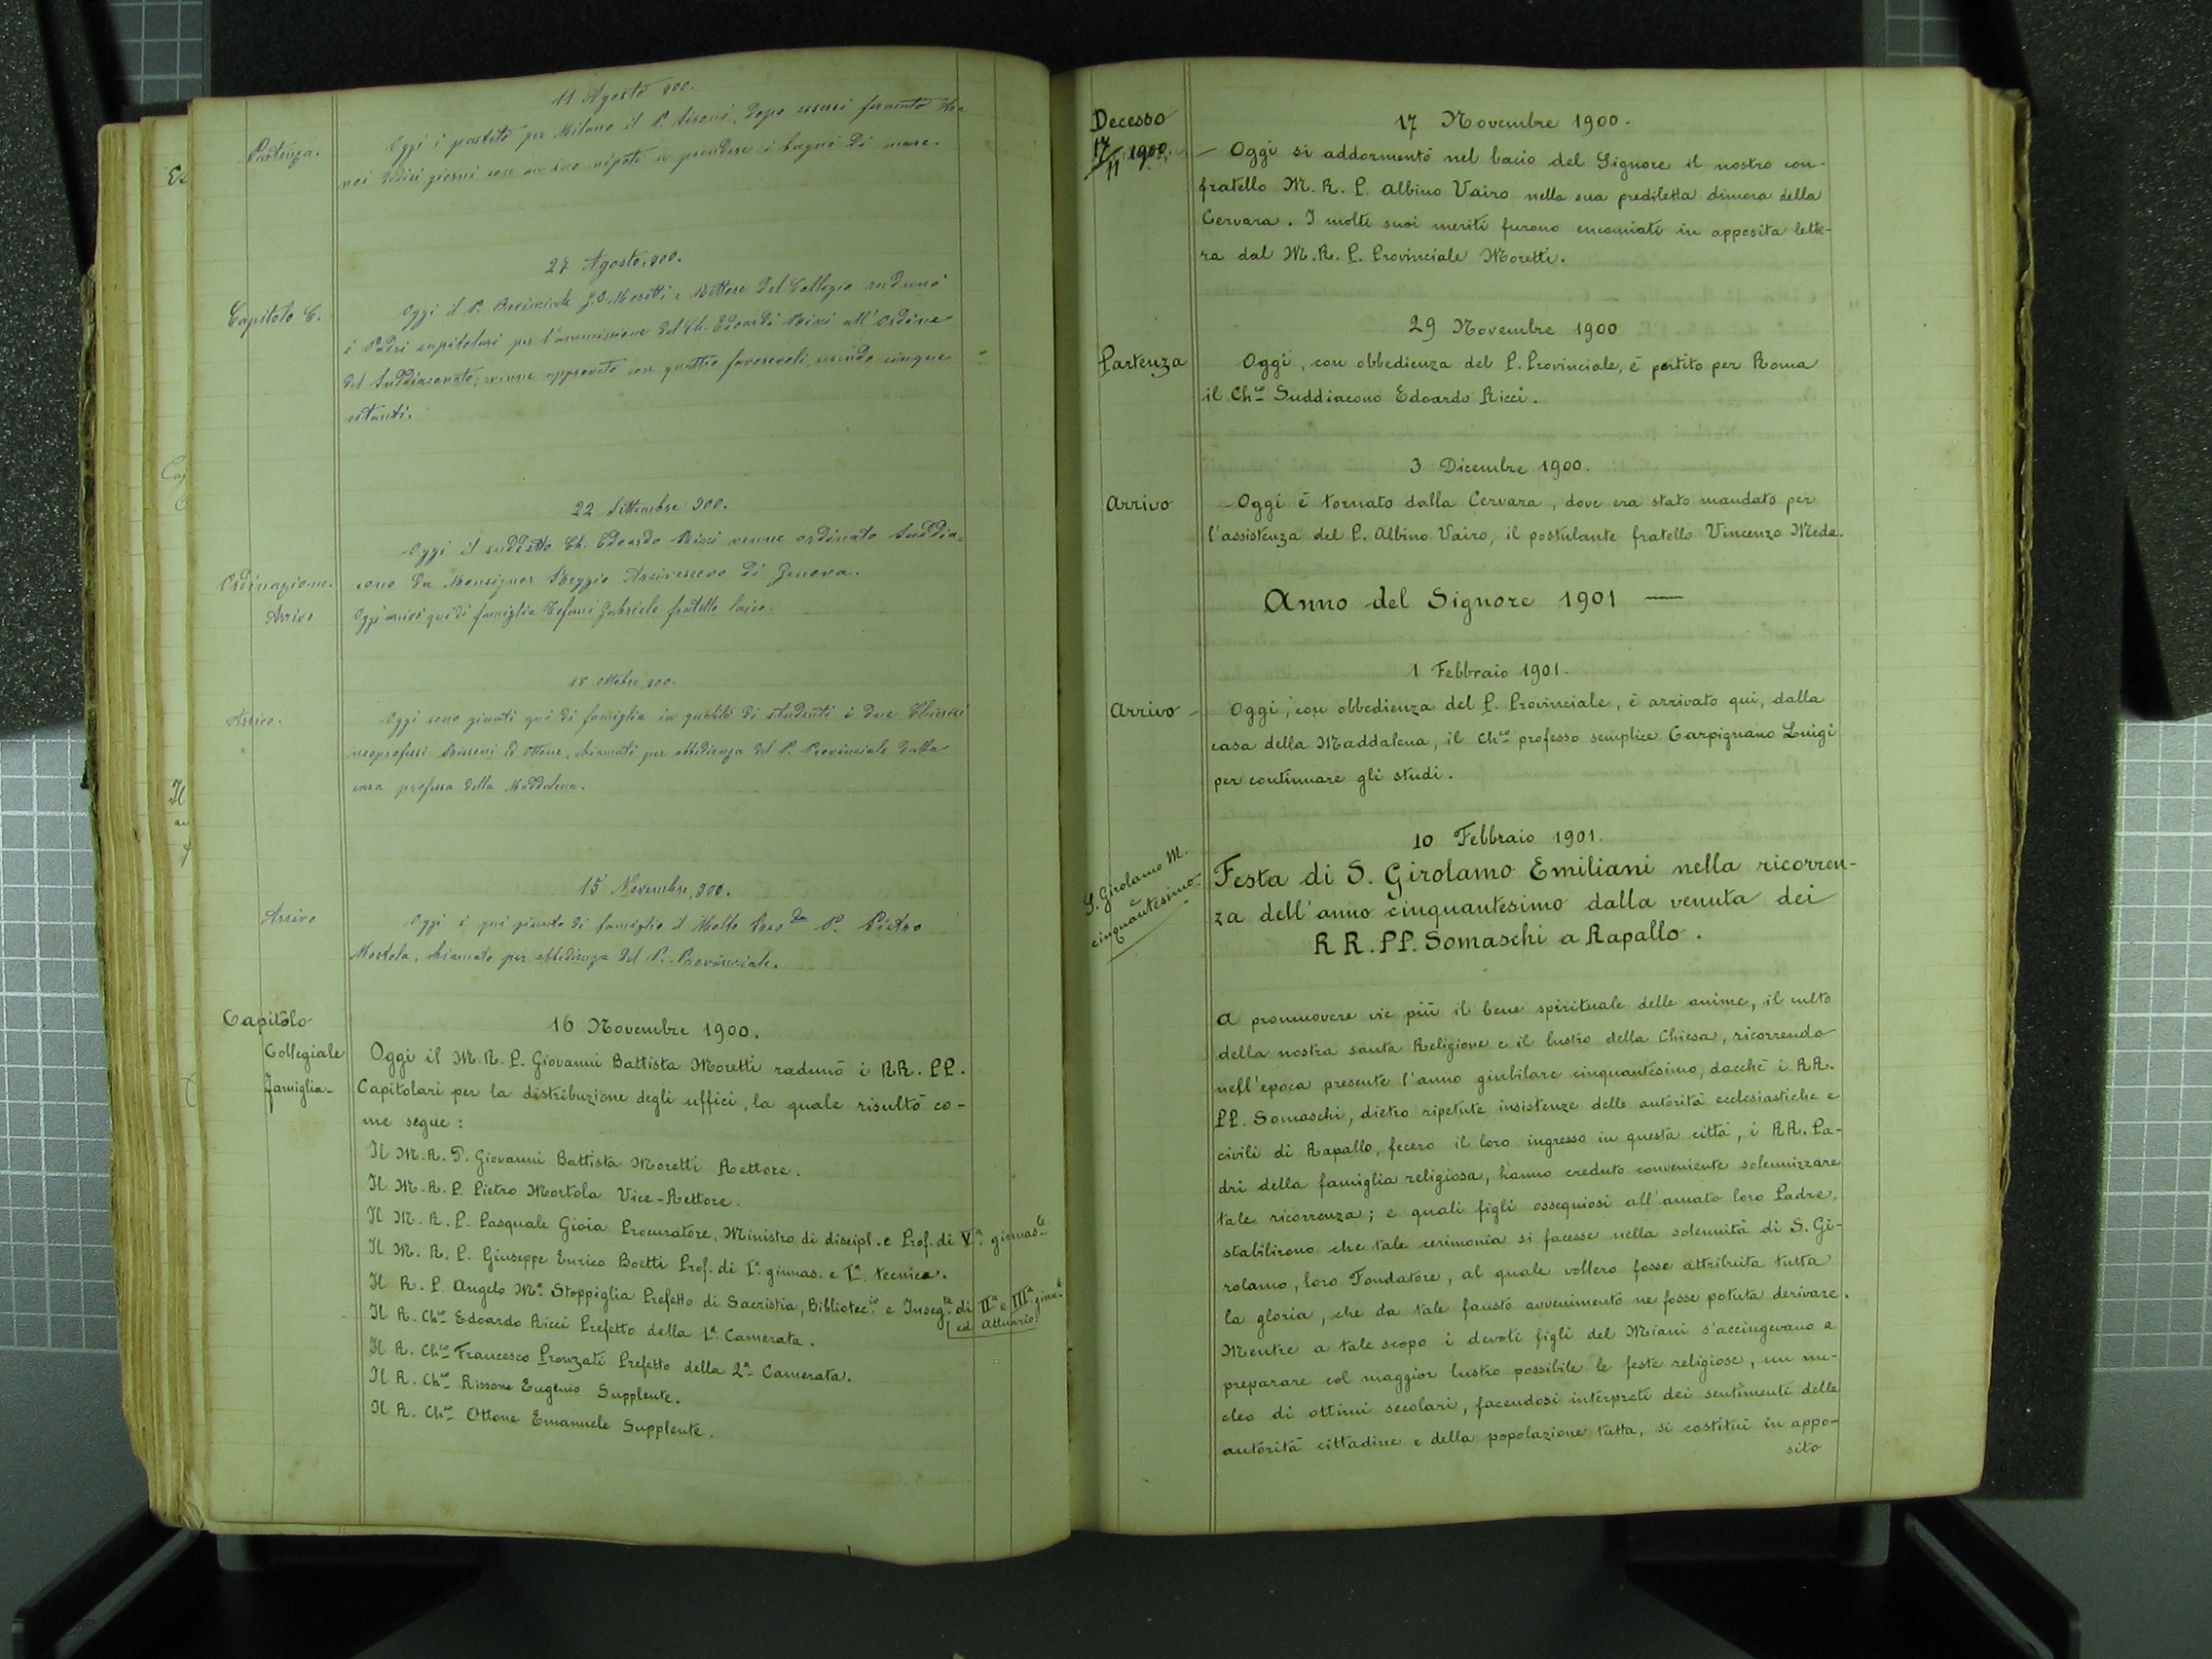 11 Agosto 900.
Partenza.
Oggi è partito per Milano il P. dopo essersi fermato
noi dodici giorni con un suo nipote a prendere i bagni di mare.
27 Agosto, 900.
Capitolo C.
Oggi il P. Provinciale G. B. Moretti e Rettore del Collegio radunò
i Padri capitolari per l'ammissione del Ch. Edoardo Ricci all'Ordine
del Suddiaconato; venne approvato con quattro favorevoli, essendo cinque
votanti.
22 Settembre 900.
Oggi il suddetto Ch. Edoardo Ricci venne ordinato Suddia-
Ordinazione.
cono da Monsignor Reggio Arcivescovo di Genova.
Arrivo
Oggi arrivò qui di famiglia Gabriele fratello laico.
18 Ottobre, 900.
Arrivo.
Oggi sono giunti qui di famiglia in qualità di studenti i due Chierici
neoprofessi Rissoni ed Ottone, chiamati per obbedienza del P. Provinciale dalla
casa professa della Maddalena.
15 Novembre, 900.
Arrivo
Oggi è qui giunto di famiglia il Molto Revdo P. Pietro
Mortola, chiamato per obbedienza del P. Provinciale.
Capitolo
Collegiale
Famiglia-
16 Novembre 1900.
Oggi il M. R. P. Giovanni Battista Moretti radunò i RR. PP.
Capitolari per la distribuzione degli uffici, la quale risultò co-
me segue:
Il M. R. P. Giovanni Battista Moretti Rettore.
Il M. R. P. Pietro Mortola Vice-Rettore.
Il M. R. P. Pasquale Gioia Procuratore, Ministro di discipl. e Prof. di Vª. ginnasle
Il M. R. P. Giuseppe Enrico Boetti Prof. di Iª. ginnas. e Iª. tecnica.
Il R. P. Angelo Mª. Stoppiglia Prefetto di Sacristia, Bibliotec.io e Inseg.te di IIª e IIIª ginn.le
ed Attuario.
Il R. Chco Edoardo Ricci Prefetto della 1ª. Camerata.
Il R. Chco Francesco Pronzati Prefetto della 2ª Camerata.
Il R. Chco Rissone Eugenio Supplente.
Il R. Chco Ottone Emanuele Supplente.
Decesso
17/11 1900.
17 Novembre 1900.
- Oggi si addormentò nel bacio del Signore il nostro con-
fratello M. R. P. Albino Vairo nella sua prediletta dimora della
Cervara. I molti suoi meriti furono encomiati in apposita lette-
ra dal M. R. P. Provinciale Moretti.
29 Novembre 1900
Partenza
Oggi, con obbedienza del P. Provinciale, è partito per Roma
il Chco Suddiacono Edoardo Ricci.
3 Dicembre 1900.
Arrivo
- Oggi è tornato dalla Cervara, dove era stato mandato per
l'assistenza del P. Albino Vairo, il postulante fratello Vincenzo Meda.
Anno del Signore 1901 —
1 Febbraio 1901.
Arrivo -
Oggi, con obbedienza del P. Provinciale, è arrivato qui, dalla
casa della Maddalena, il Chco professo semplice Carpignano Luigi
per continuare gli studi.
10 Febbraio 1901.
S. Girolamo M.
e
cinquantesimo.
Festa di S. Girolamo Emiliani nella ricorren-
za dell'anno cinquantesimo dalla venuta dei
RR. PP. Somaschi a Rapallo.
A promuovere vie più il bene spirituale delle anime, il culto
della nostra santa Religione e il lustro della Chiesa, ricorrendo
nell'epoca presente l'anno giubilare cinquantesimo, dacchè i RR.
PP. Somaschi, dietro ripetute insistenze delle autorità ecclesiastiche e
civili di Rapallo, fecero il loro ingresso in questa città, i RR. Pa-
dri della famiglia religiosa, hanno creduto conveniente solennizzare
tale ricorrenza; e quali figli ossequiosi all'amato loro Padre,
stabilirono che tale cerimonia si facesse nella solennità di S. Gi-
rolamo, loro Fondatore, al quale vollero fosse attribuita tutta
la gloria, che da tale fausto avvenimento ne fosse potuta derivare.
Mentre a tale scopo i devoti figli del Miani s'accingevano a
preparare col maggior lustro possibile le feste religiose, un nu-
cleo di ottimi secolari, facendosi interpreti dei sentimenti delle
autorità cittadine e della popolazione tutta, si costituì in appo-
sito